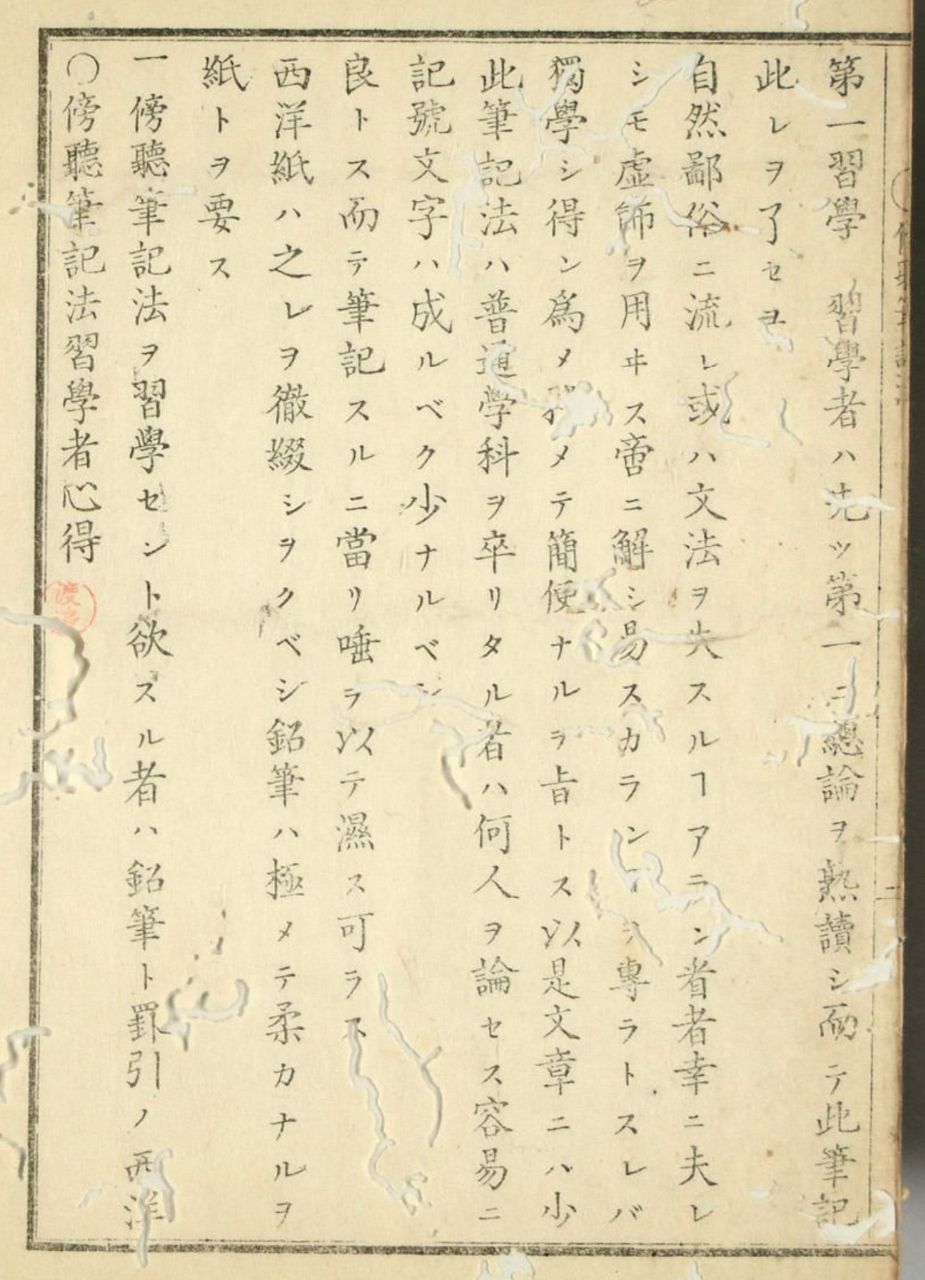 〇傍聽筆記法習學者心得
一傍聽筆記法ヲ習學セント欲スル者ハ鉛筆ト罫引ノ西洋
紙トヲ要ス
西洋紙ハ之レヲ徹綴シヲクベシ鉛筆ハ極メテ柔カナルヲ
良トス而テ筆記スルニ當リ唾ヲ以テ濕ス可ラス
記號文字ハ成ルベク少ナルベシ
此筆記法ハ普通学科ヲ卒リタル者ハ何人ヲ論セス容易ニ
獨學シ得ン爲メメテ簡便ナルヲ旨トス以是文章ニハ少
シモ虚飾ヲ用ヰス啻ニ解シ易スカランヿヲ專ラトスレバ
自然鄙俗ニ流レ或ハ文法ヲ失スルヿアラン者幸ニ夫レ
此レヲ了セヨ
第一習學 習學者ハ先ツ第一ニ總論ヲ熟讀シ而テ此筆記